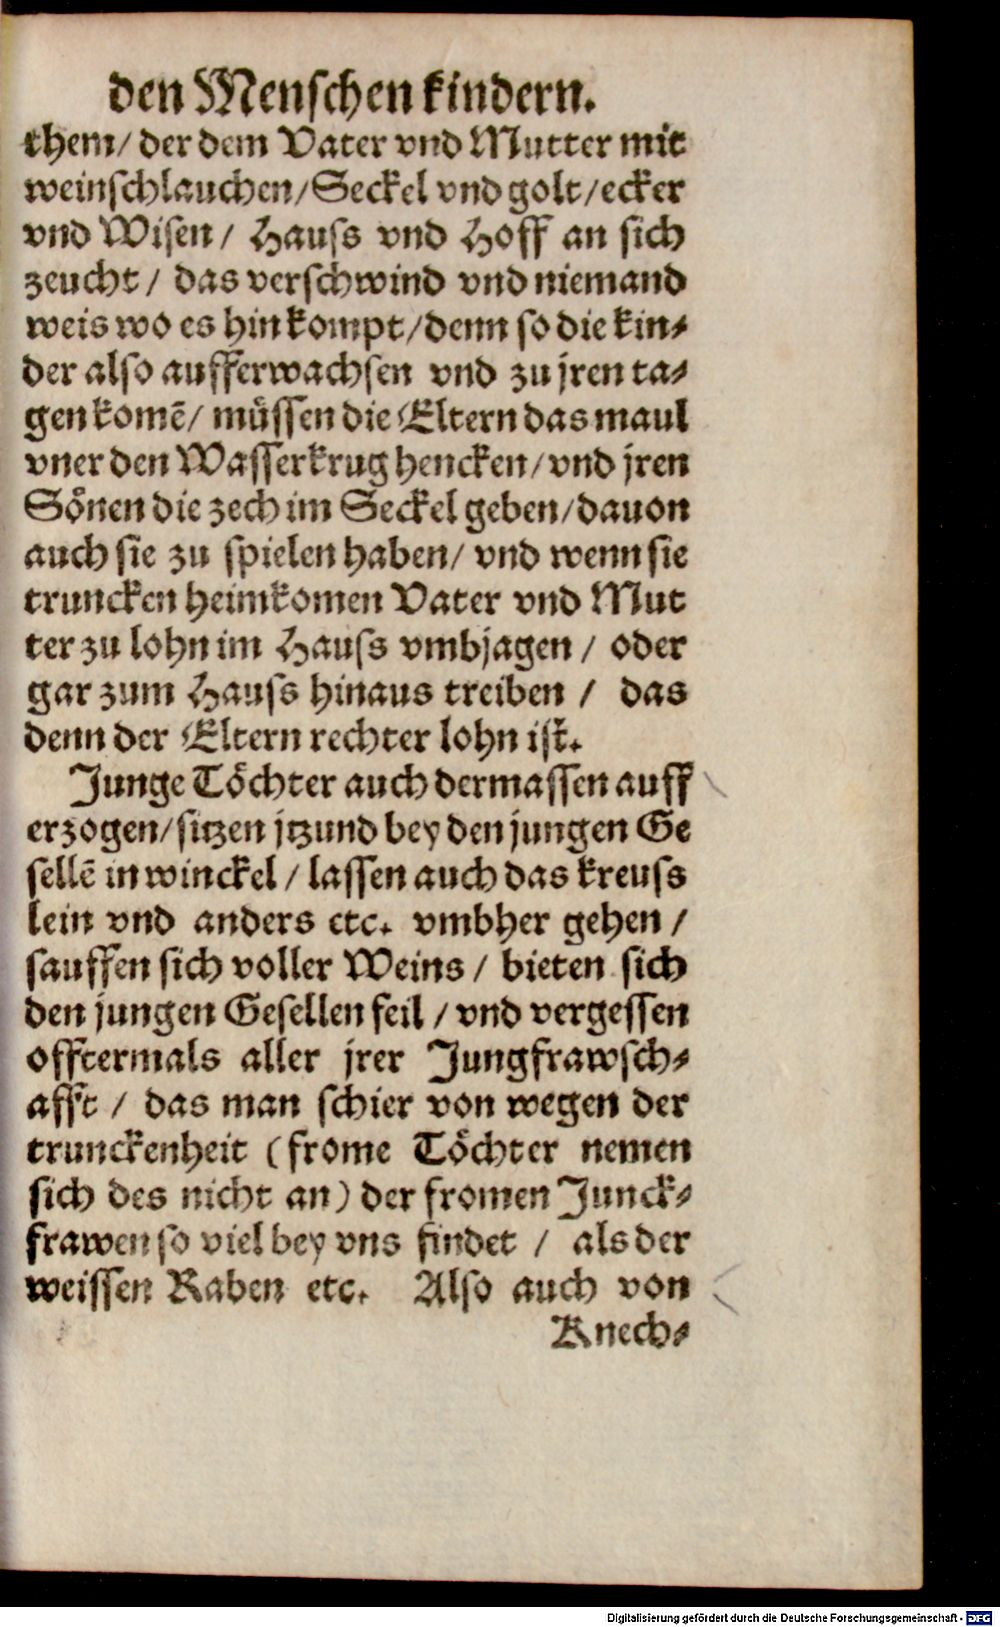 den Menschen kindern.
them/ der dem Vater vnd Mutter mit
weinschlauchen/ Seckel vnd golt/ ecker
vnd Wisen/ Hauss vnd Hoff an sich
zeucht/ das verschwind vnd niemand
weis wo es hin kompt/ denn so die kin-
der also aufferwachsen vnd zu jren ta-
gen komē/ müssen die Eltern das maul
vner den Wasserkrug hencken/ vnd jren
Sönen die zech im Seckel geben/ dauon
auch sie zu spielen haben/ vnd wenn sie
truncken heimkomen Vater vnd Mut
ter zu lohn im Hauss vmbjagen/ oder
gar zum Hauss hinaus treiben/ das
denn der Eltern rechter lohn ist.
Junge Töchter auch dermassen auff
erzogen/ sitzen jtzund bey den jungen Ge
sellē in winckel/ lassen auch das kreuss
lein vnd anders etc. vmbher gehen/
sauffen sich voller Weins/ bieten sich
den jungen Gesellen feil/ vnd vergessen
offtermals aller jrer Jungfrawsch-
afft/ das man schier von wegen der
trunckenheit (frome Töchter nemen
sich des nicht an) der fromen Junck-
frawen so viel bey vns findet/ als der
weissen Raben etc. Also auch von
Knech-
Digitalisierung gefördert durch die Deutsche Forschungsgemeinschaft - DFG